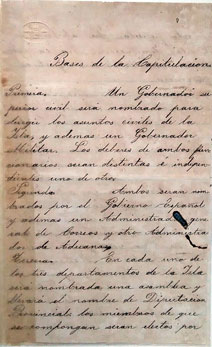 Bases de la Capitulacion
Primera. Un Gobernador su
perior civil será nombrado para
dirigir los asuntos civiles de la
Isla, y ademas un Gobernador
Militar. Los deberes de ambos fun
cionarios serán distintos é indepen
dientes uno de otro.
Segunda Ambos serán nom
brados por el Gobierno Español
y ademas un Administrador gene
ral de Correos y otro Administra
dor de Aduanas
Tercera En cada uno de
los tres departamentos de la Isla
será nombrada una asamblea y
llevará el nombre de Diputacion
Provincial: los miembros de que
se compongan serán electos por